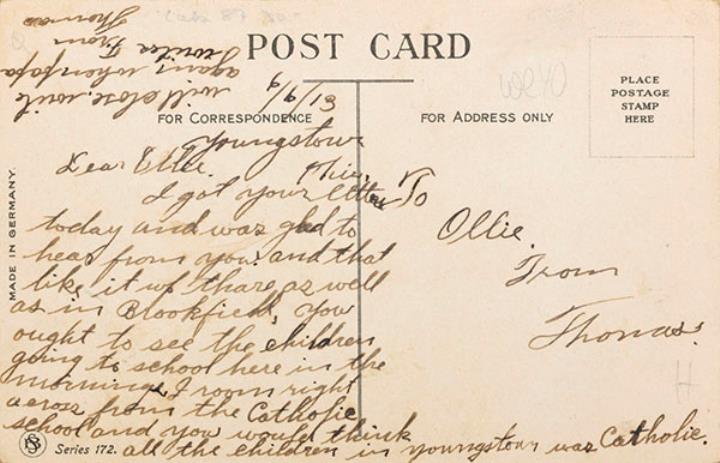 POST CARD
PLACE
POSTAGE
STAMP
HERE
FOR CORRESPONDENCE
FOR ADDRESS ONLY
MADE IN GERMANY.
9/9/13
Youngstown
Ohio.
Dear Ollie.
I got your letter
today and was glad to
hear from you. and that
like it up thare as well
as in Brookfield, You
ought to see the children
going to school here in the
morning, I room right
across from the Catholic
school and you would think
all the children in youngstown was Catholic.
will close. write
again when papa
writes From
Thomas
To
Ollie.
From
Thomas.
Series 172.
H